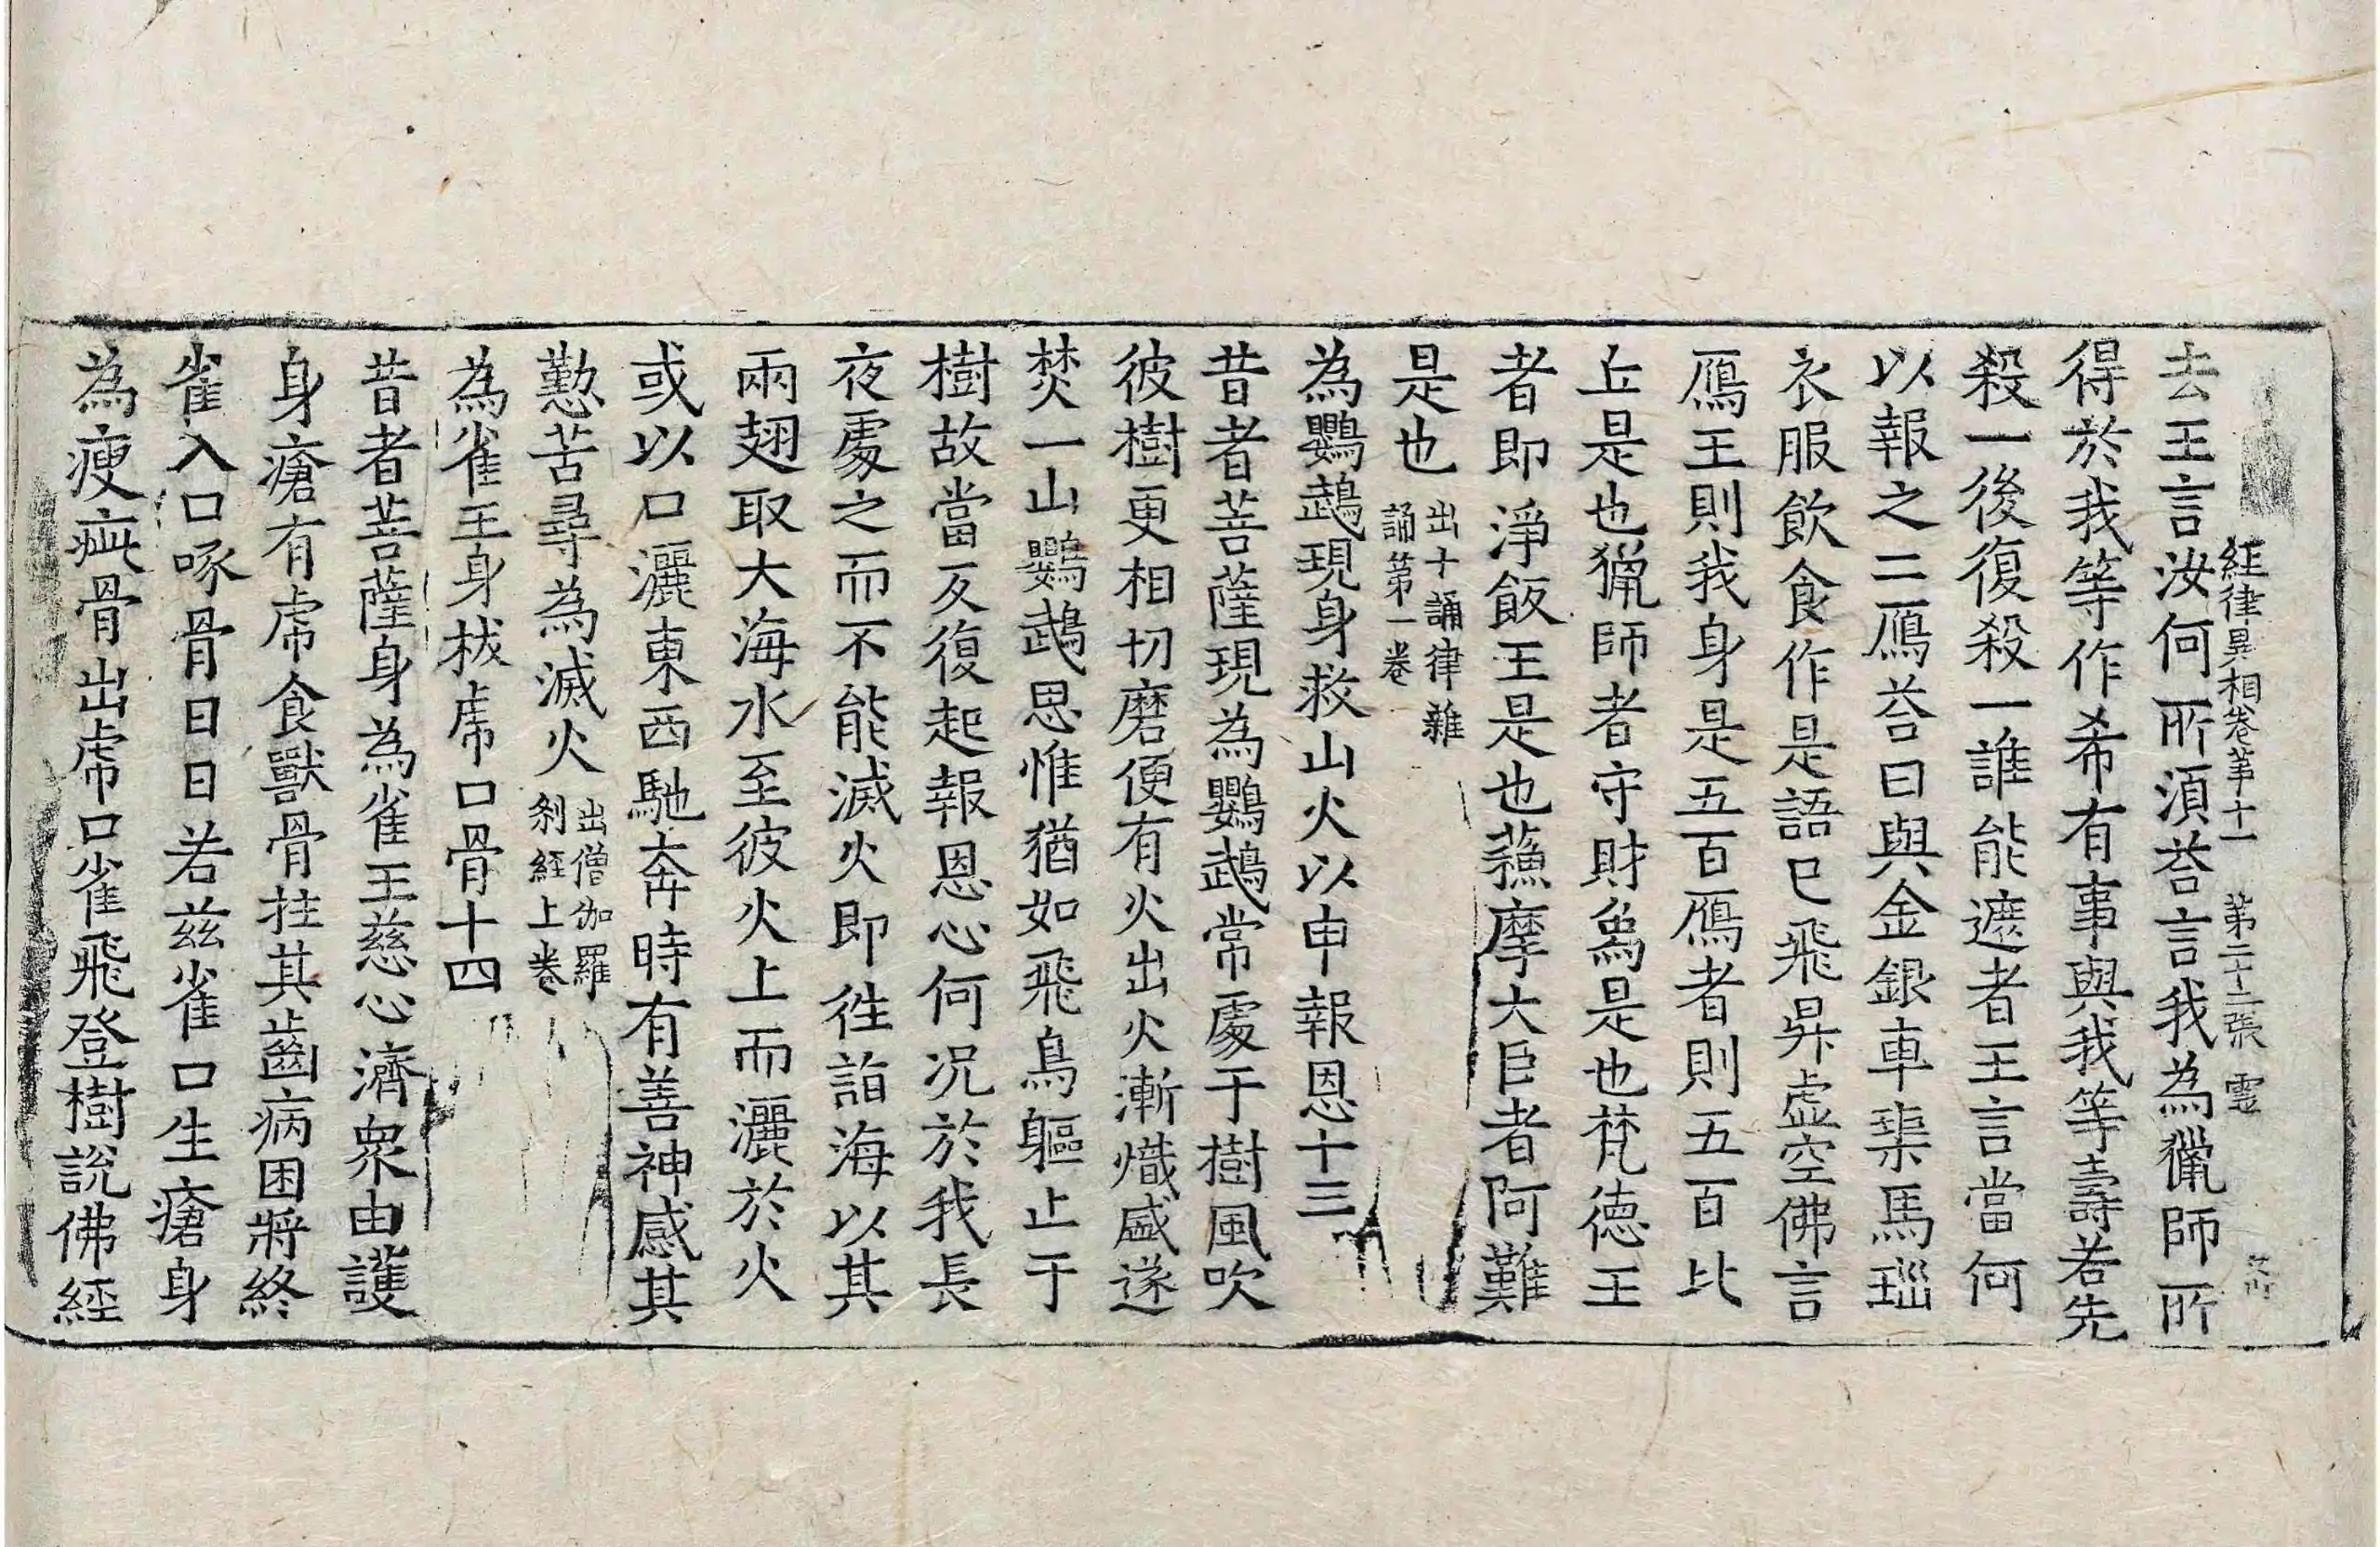 經律異相卷第十一 第二十二張 靈
去王言汝何所須荅言我為獵師所
得於我等作希有事與我等壽若先
殺一後復殺一誰能遮者王言當何
以報之二鴈荅曰與金銀車𤦲馬瑙
衣服飲食作是語已飛昇虛空佛言
鴈王則我身是五百鴈者則五百比
丘是也獵師者守財為是也梵德王
者即淨飯王是也蘓摩大臣者阿難
是也 出十誦律雜
誦第一卷
為鸚鵡現身救山火以申報恩十三
昔者菩薩現為鸚鵡常處于樹風吹
彼樹更相切磨便有火出火漸熾盛遂
焚一山鸚鵡思惟猶如飛鳥軀止于
樹故當反復起報恩心何況於我長
夜處之而不能滅火即徃詣海以其
兩翅取大海水至彼火上而灑於火
或以口灑東西馳奔時有善神感其
懃苦尋為滅火 出僧伽羅
剎經上卷
為雀王身拔虎口骨十四
昔者菩薩身為雀王慈心濟衆由護
身瘡有虎食獸骨拄其齒病困將終
雀入口啄骨日日若兹雀口生瘡身
為瘦疵骨出虎口雀飛登樹說佛經